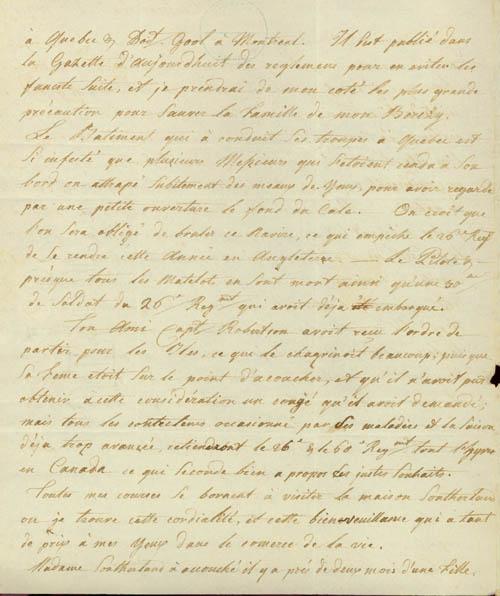 à Quebec & Doct. Gool à Montreal. Il Sort publié dans
la Gazette d'aujourdhuit des reglemens pour en eviter les
funeste Suite, et je prendrai de mon coté les plus grande
précaution pour Sauver la famille de mon
Le Batiment qui à conduit Ses troupes à Quebec est
Si infesté que plusieurs Messieurs qui S'etoient rendu à Son
bord on attrapé Subitement des meaux de Yeux, pour avoir regardé
par une petite ouverture le fond du Cale. On croit que
l'on Sera obligé de bruler ce Navire, ce qui empêche le 26e Regt
de Se rendre cette Année en Angleterre — Le Pilote &
presque tous les Matelots en Sont mort ainsi qu'une 30e
de Soldat du 26e Regmt qui avoit déja embarqué.
Ton Ami Capt Robertson avoit reçu l'ordre de
partir pour les Isles, ce que le chagrinoit beaucoup; puisque
Sa feme etoit Sur le point d'acoucher, et qu'il n'avoit pus
obtenir a cette consideration un congé qu'il avoit demandé;
mais tous les occasionné par Ses maladies et la Saison
déja trop avancée, retiendront le 26e & le 60e Regmt tout l'hyver
en Canada ce qui Seconde bien a propos Ses justes Souhaits.
Toutes mes courses Se bornent à visiter la maison
ou je trouve cette cordialité, et cette bienveuillance qui a tant
de prix à mes Yeux dans le comerce de la vie.
Madame à accouché il y a prés de deux mois d'une fille.